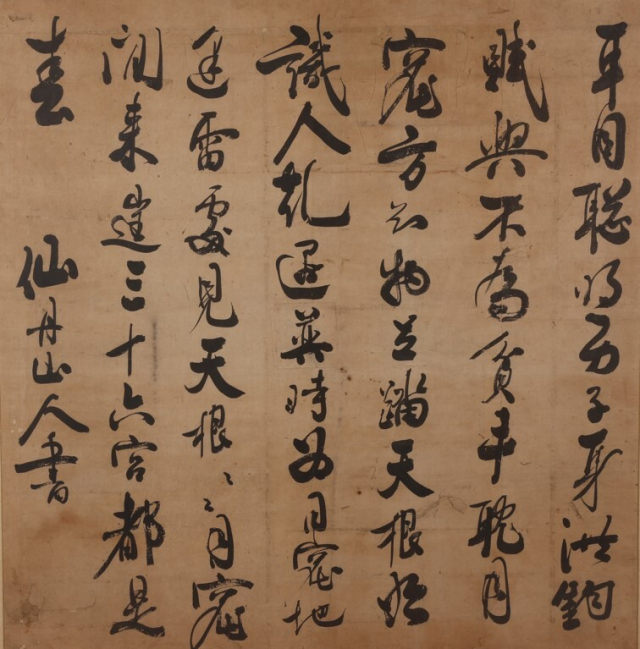 耳目聡明男子身洪鈞
賦與不為貧月
窟方知物豈躡天根始
識人乾遇巽時為月窟地
逢雷處見天根〻〻月窟
閒来徃三十六宮都是
春
仙丹山人書